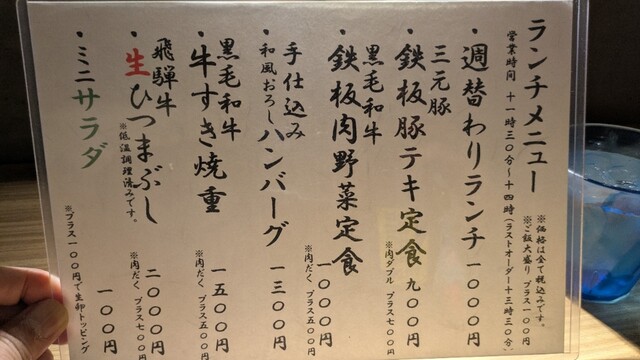 ランチメニュー
※価格は全て税込みです。
※ご飯大盛り プラス一〇〇円
営業時間 十一時三〇分〜十四時(ラストオーダー十三時三〇分)
・週替わりランチ 一〇〇〇円
三元豚
・鉄板豚テキ定食 九〇〇円
※肉ダブル プラス七〇〇円
黒毛和牛
・鉄板肉野菜定食 一〇〇〇円
※肉だく、プラス五〇〇円
手仕込み
・和風おろしハンバーグ 一三〇〇円
黒毛和牛
・牛すき焼重 一五〇〇円
※肉だく、プラス五〇〇円
飛騨牛
・生ひつまぶし 二〇〇〇円
※低温調理済みです。
※肉だく、プラス七〇〇円
・ミニサラダ 一〇〇円
※プラス一〇〇円で生卵トッピング